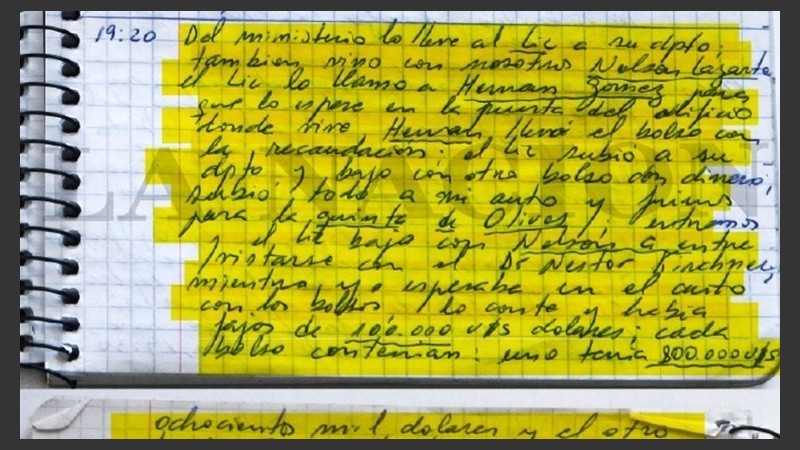 19:20 Del ministerio lo lleve al Lic a su dpto;
tambien vino con nosotros Nelson Lazarte,
el Lic lo llamo a Hernan Gomez para
que lo espere en la puerta del edificio
donde vive Hernan, llevó el bolso con
la recaudación; el Lic subió a su
dpto y bajo con otro bolso con dinero;
subió todo a mi auto y fuimos
para la quinta de Olivos; entramos
y el Lic bajo con Nelson a entre
vistarse con el Dr Nestor Kirchner,
mientras yo esperaba en el auto
con los bolsos, lo conte y habia
fajos de 100.000 u$s dolares; cada
bolso contenian: uno tenia 800.000 u$s
ochocientos mil dolares y el otro
LA NACION